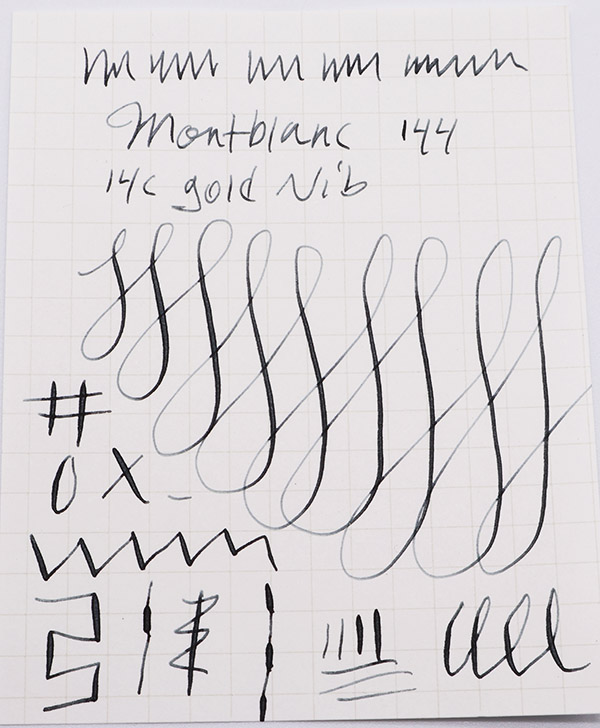 Montblanc 144
14c gold Nib
#
O X -